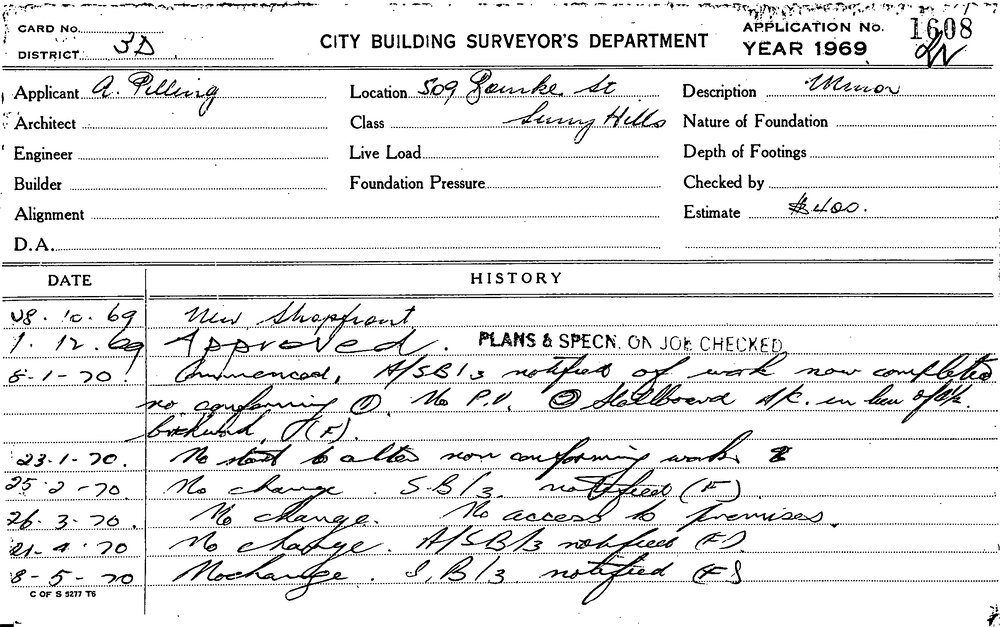 CARD No.
DISTRICT 3D
CITY BUILDING SURVEYOR'S DEPARTMENT
APPLICATION No. 1608
YEAR 1969
Applicant A. Pilling
Location 509 Bourke St
Description Minor
Architect
Class Surry Hills
Nature of Foundation
Engineer
Live Load
Depth of Footings
Builder
Foundation Pressure
Checked by
Alignment
Estimate $400.
D.A.
DATE
HISTORY
28.10.69 New Shopfront
1.12.69 Approved. PLANS & SPECN. ON JOB CHECKED
8-1-70. Commenced, A/SB/3 notified of work now completed
no conforming ①. No P.V. ② Stallboard A/C. in lieu of
brickwork, (F).
23-1-70. No start to alter non conforming work.
25-2-70. No change. S.B/3. notified (F)
26.3.70. No change. No access to premises.
21-4-70 No change. A/SB/3 notified (F).
8-5-70 No change. S.B/3 notified (F)
C OF S 5277 T6